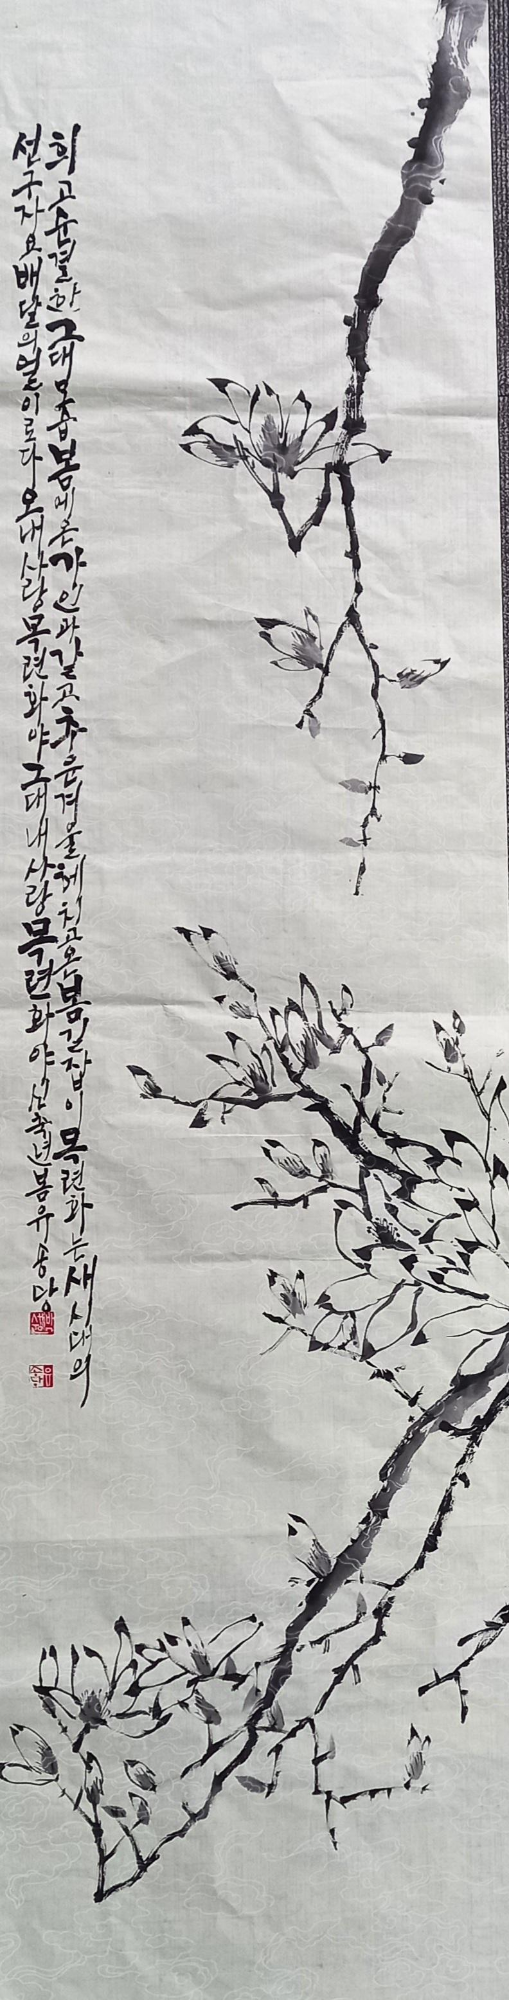 희고순결한그대모습봄에온가인과같고추운겨울헤치고온봄길잡이목련화는새시대의
선구자요배달의얼이로다오내사랑목련화야그대내사랑목련화야신축년봄유송당